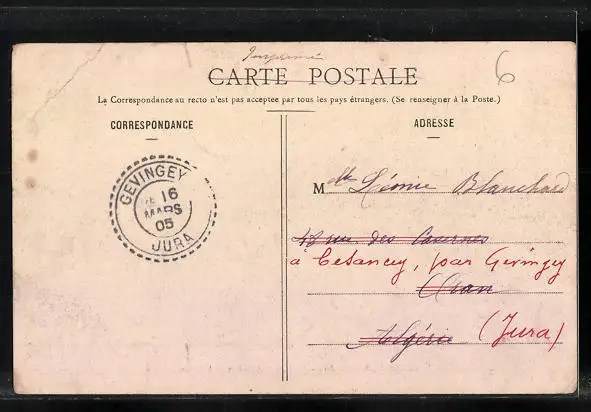 Imprimé
CARTE POSTALE
6
La Correspondance au recto n'est pas acceptee par tous les pays étrangers. (Se renseigner à la Poste.)
CORRESPONDANCE
ADRESSE
GEVINGEY
16
MARS
05
JURA
Mlle Léonie Blanchard
18 rue des Casernes
à Cesancey, par Gevingey
Oran
Algérie (Jura)